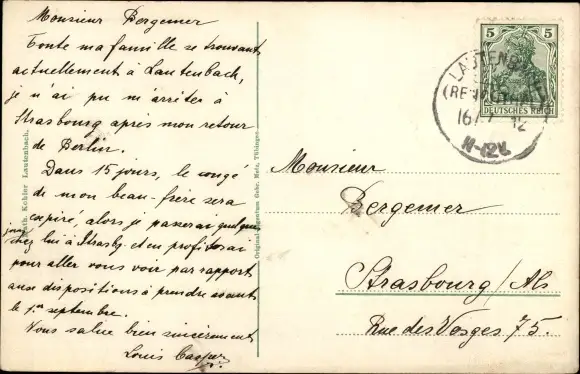 Monsieur Bergemer
Toute ma famille se trouvant
actuellement à Lautenbach,
je n'ai pu m'arrêter à
Strasbourg après mon retour
de Berlin.
Dans 15 jours, le congé
de mon beau-frère sera
expiré, alors je passerai quelques
jours chez lui à Strasbg. et en profiterai
pour aller vous voir par rapport
aux dispositions à prendre avant
le 1er septembre.
Vous salue bien sincèrement
Louis
Kohler Lautenbach.
Original-Eigentum Gebr. Metz, Tübingen
5 5
DEUTSCHES REICH
LAUTENB
16
12
11-12V.
Monsieur
Bergemer
Strasbourg / Als
Rue des Vosges 75.